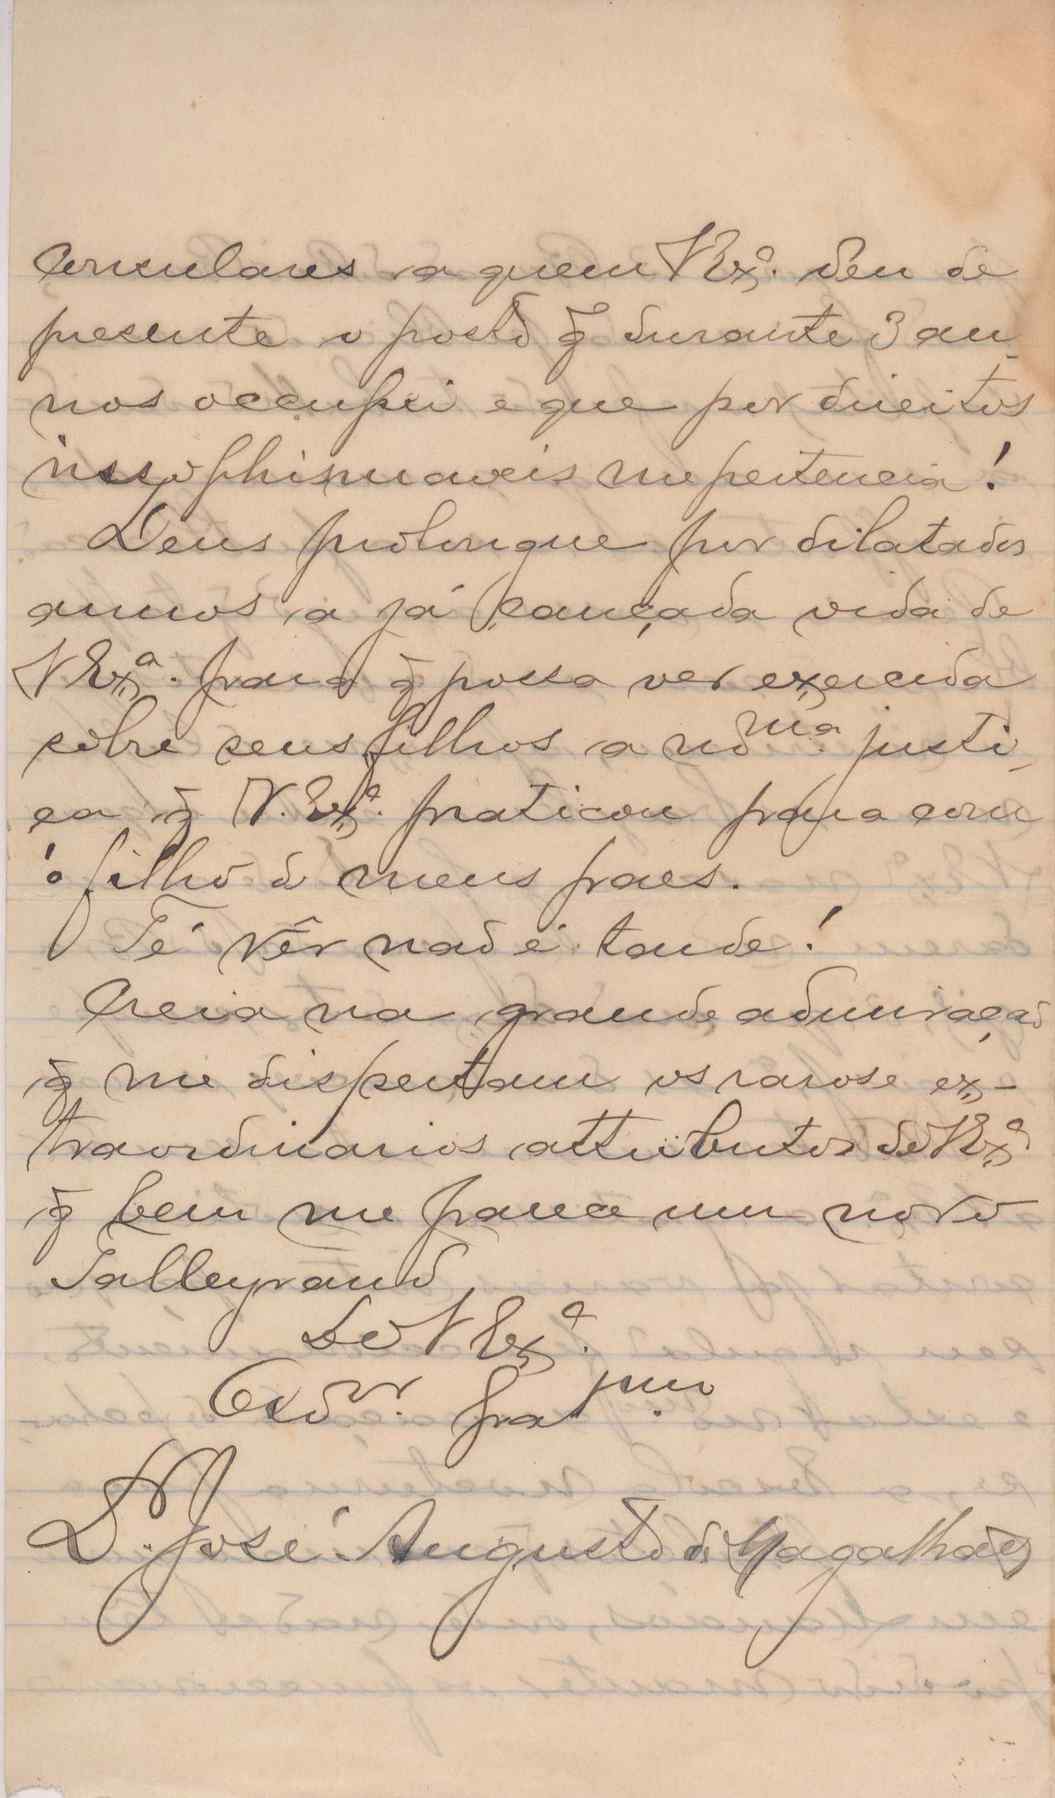 Consulares a quem V Exª. deu de
presente o posto q̃ durante 3 an-
nos occupei e que por direitos
insophismaveis me pertencia!
Deus prolongue por dilatados
annos a já cançada vida de
V Exª. para q̃ possa ver exercida
sobre seus filhos a mma justi-
ça q̃ V. Exª. praticou para com
o filho de meus paes.
Té vêr não é tarde!
Creia na grande admiração
q̃ me dispertam os raros e ex-
traordinarios attributos de V Exª
q̃ bem me parece um novo
Talleyrand
De V Exª.
Crdor. gratmo.
Dr. José Augusto de Magalhães